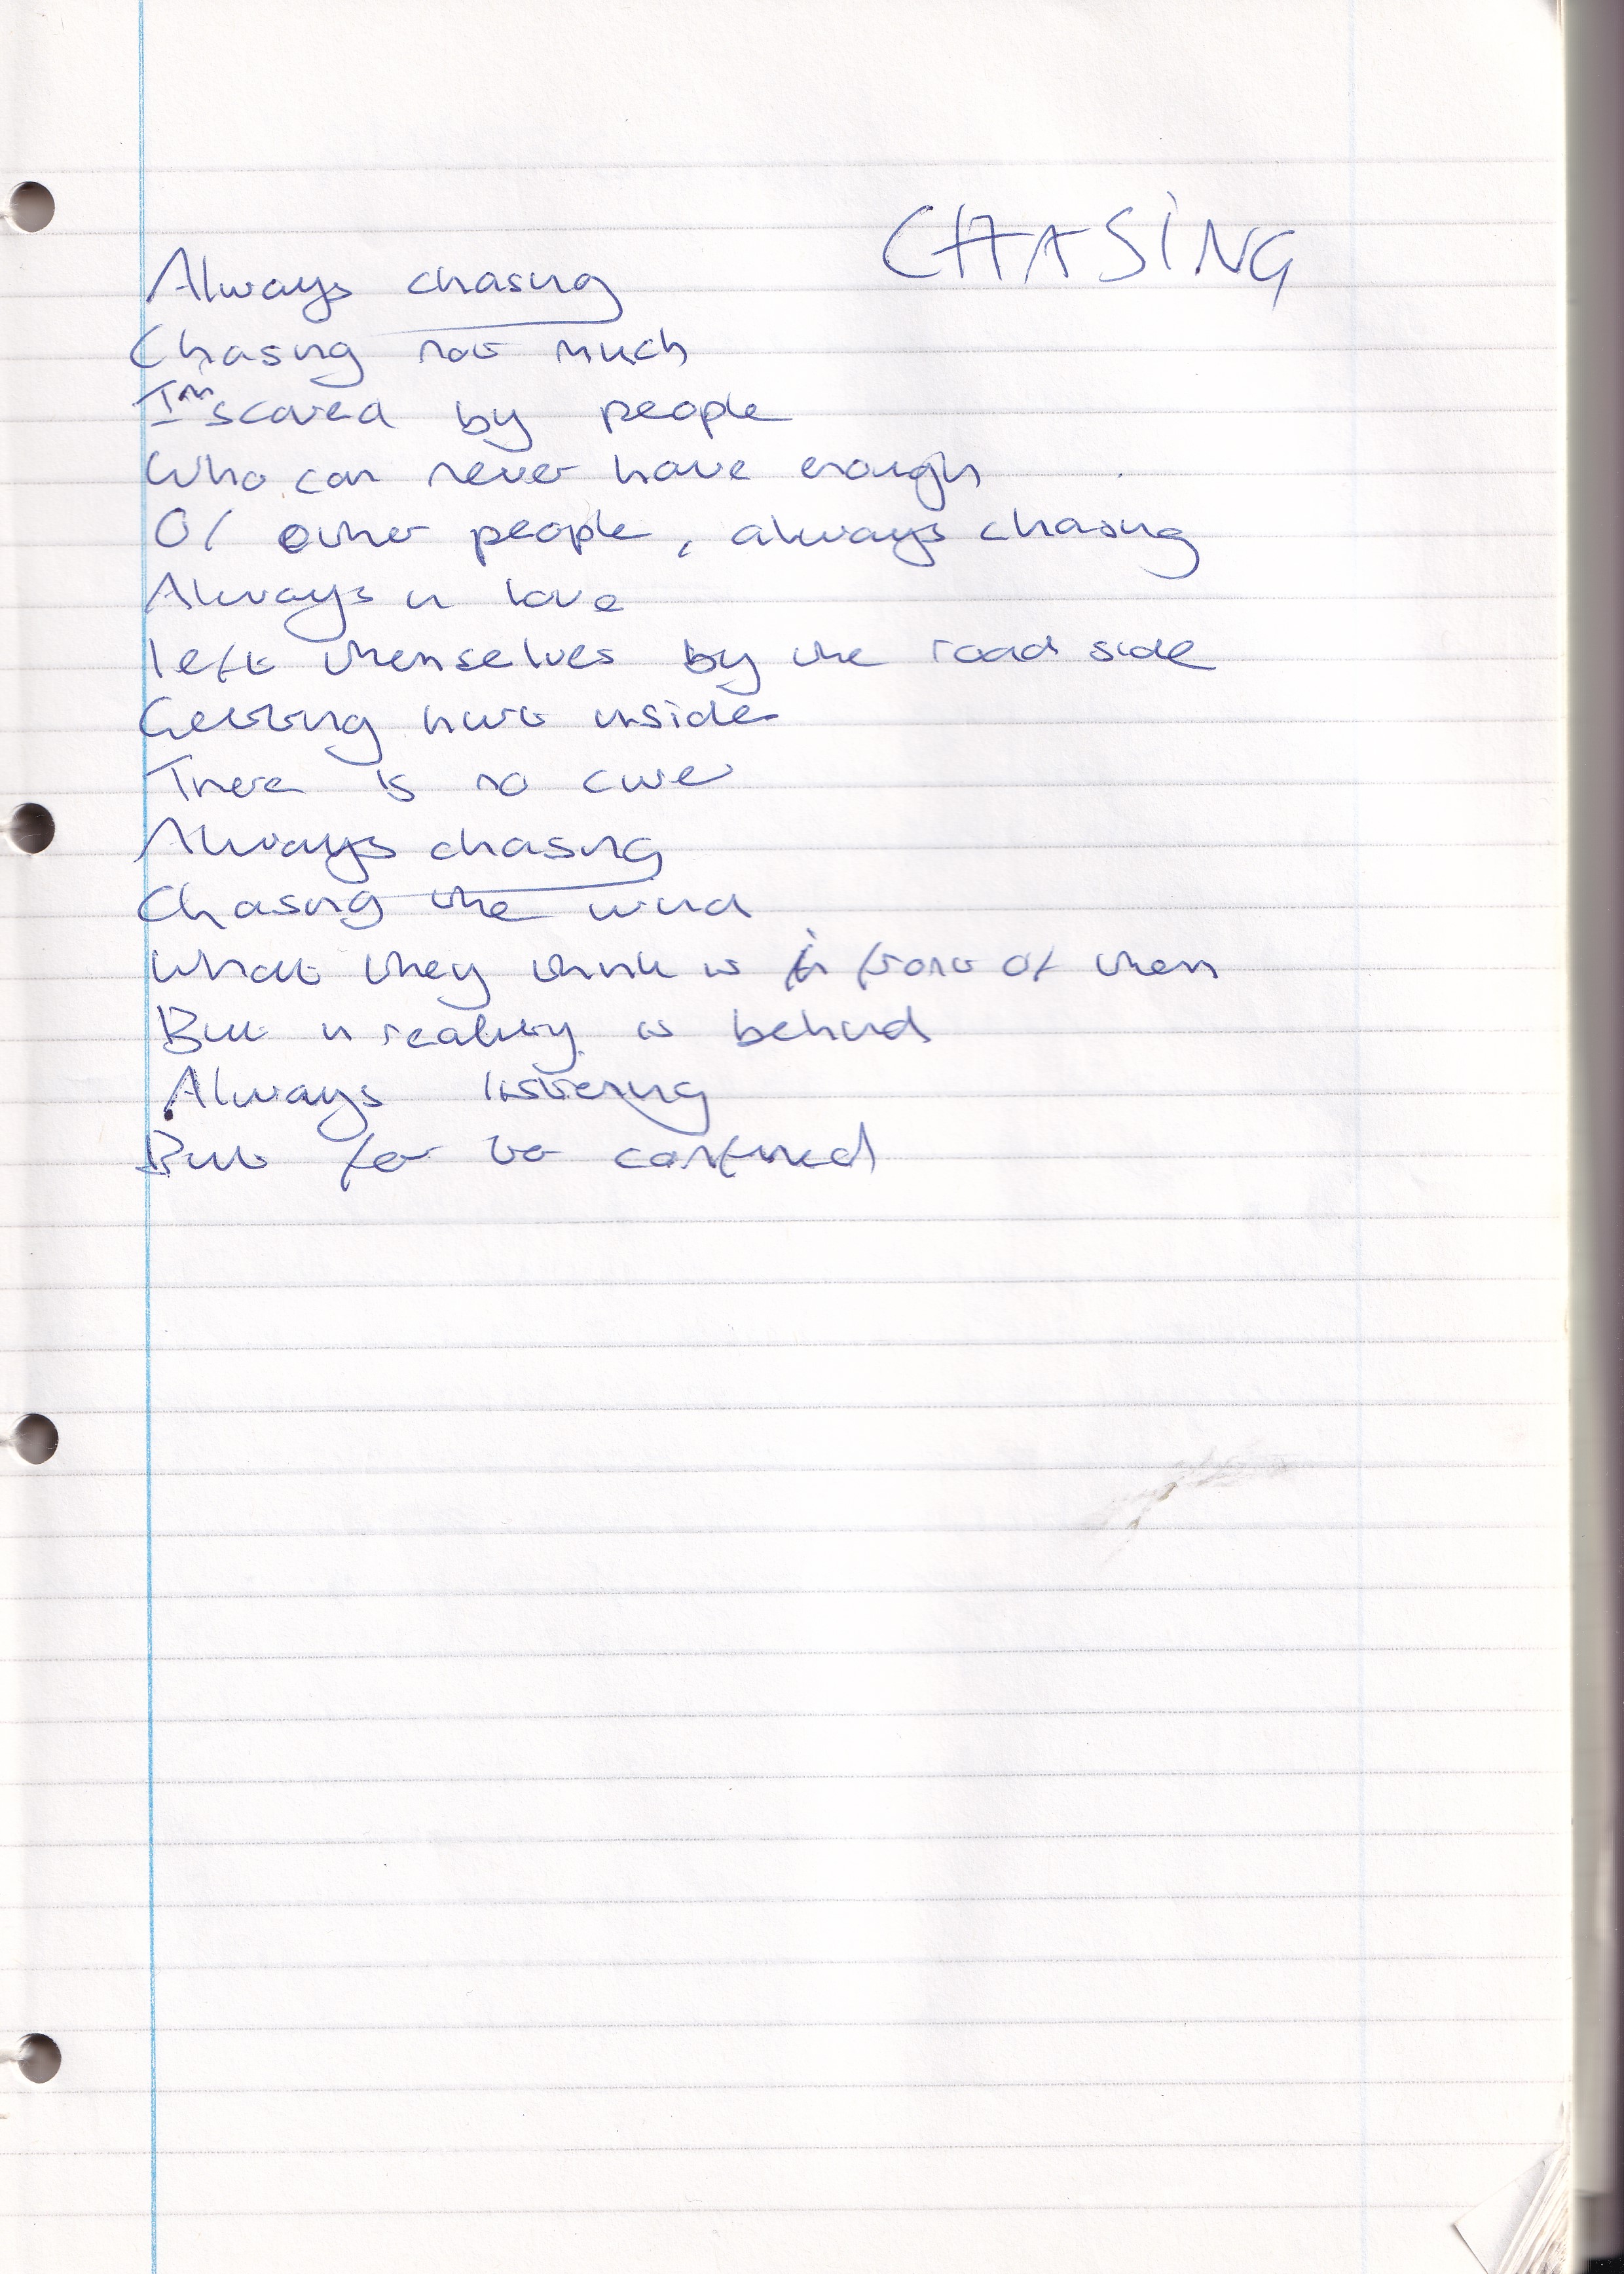 CHASING
Always chasing
Chasing not much
I'm scared by people
Who can never have enough
Of other people, always chasing
Always in love
left themselves by the road side
Getting hurt inside
There is no cure
Always chasing
Chasing the wind
What they think is in front of them
But in reality is behind
Always listening
But far too confined